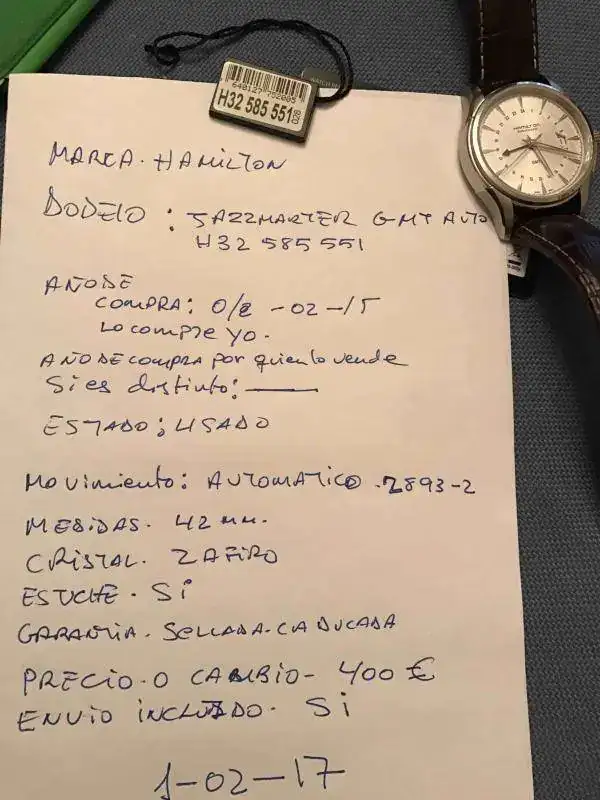 640127752005
H32 585 551
MARCA. HAMILTON
MODELO: JAZZMARTER GMT AUTO
H32 585 551
AÑO DE
COMPRA: -02-15
LO COMPRE YO.
AÑO DE COMPRA por quien lo vende
Si es distinto: ———
ESTADO: USADO
Movimiento: AUTOMATICO. 2893-2
MEDIDAS. 42 mm.
CRISTAL. ZAFIRO
ESTUCHE. Si
GARANTIA. SELLADA. CADUCADA
PRECIO. O CAMBIO- 400 €
ENVIO INCLUIDO. Si
1-02-17
HAMILTON